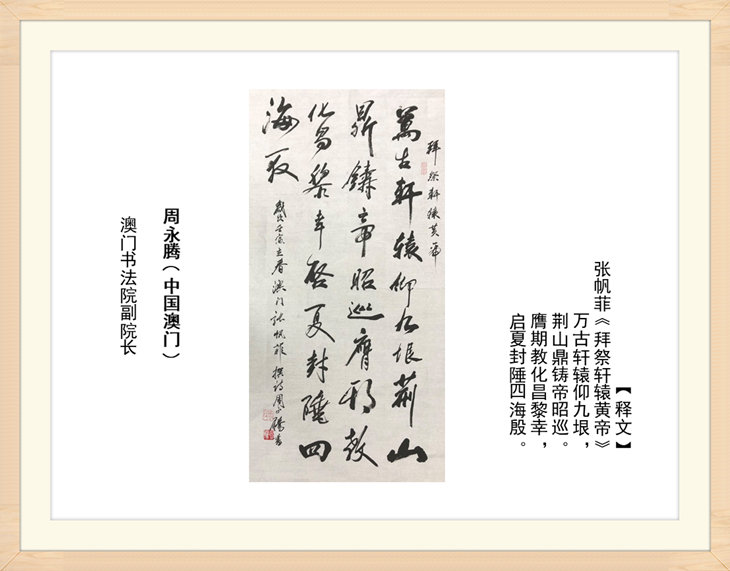 【释文】
张帆菲《拜祭轩辕黄帝》
万古轩辕仰九垠，
荆山鼎铸帝昭巡。
膺期教化昌黎幸，
启夏封陲四海殷。
拜祭轩辕黄帝
万古轩辕仰九垠荆山
鼎铸帝昭巡膺期教
化昌黎幸启夏封陲四
海殷
岁次壬寅立春澳门张帆菲撰诗周永腾书
周永腾（中国澳门）
澳门书法院副院长